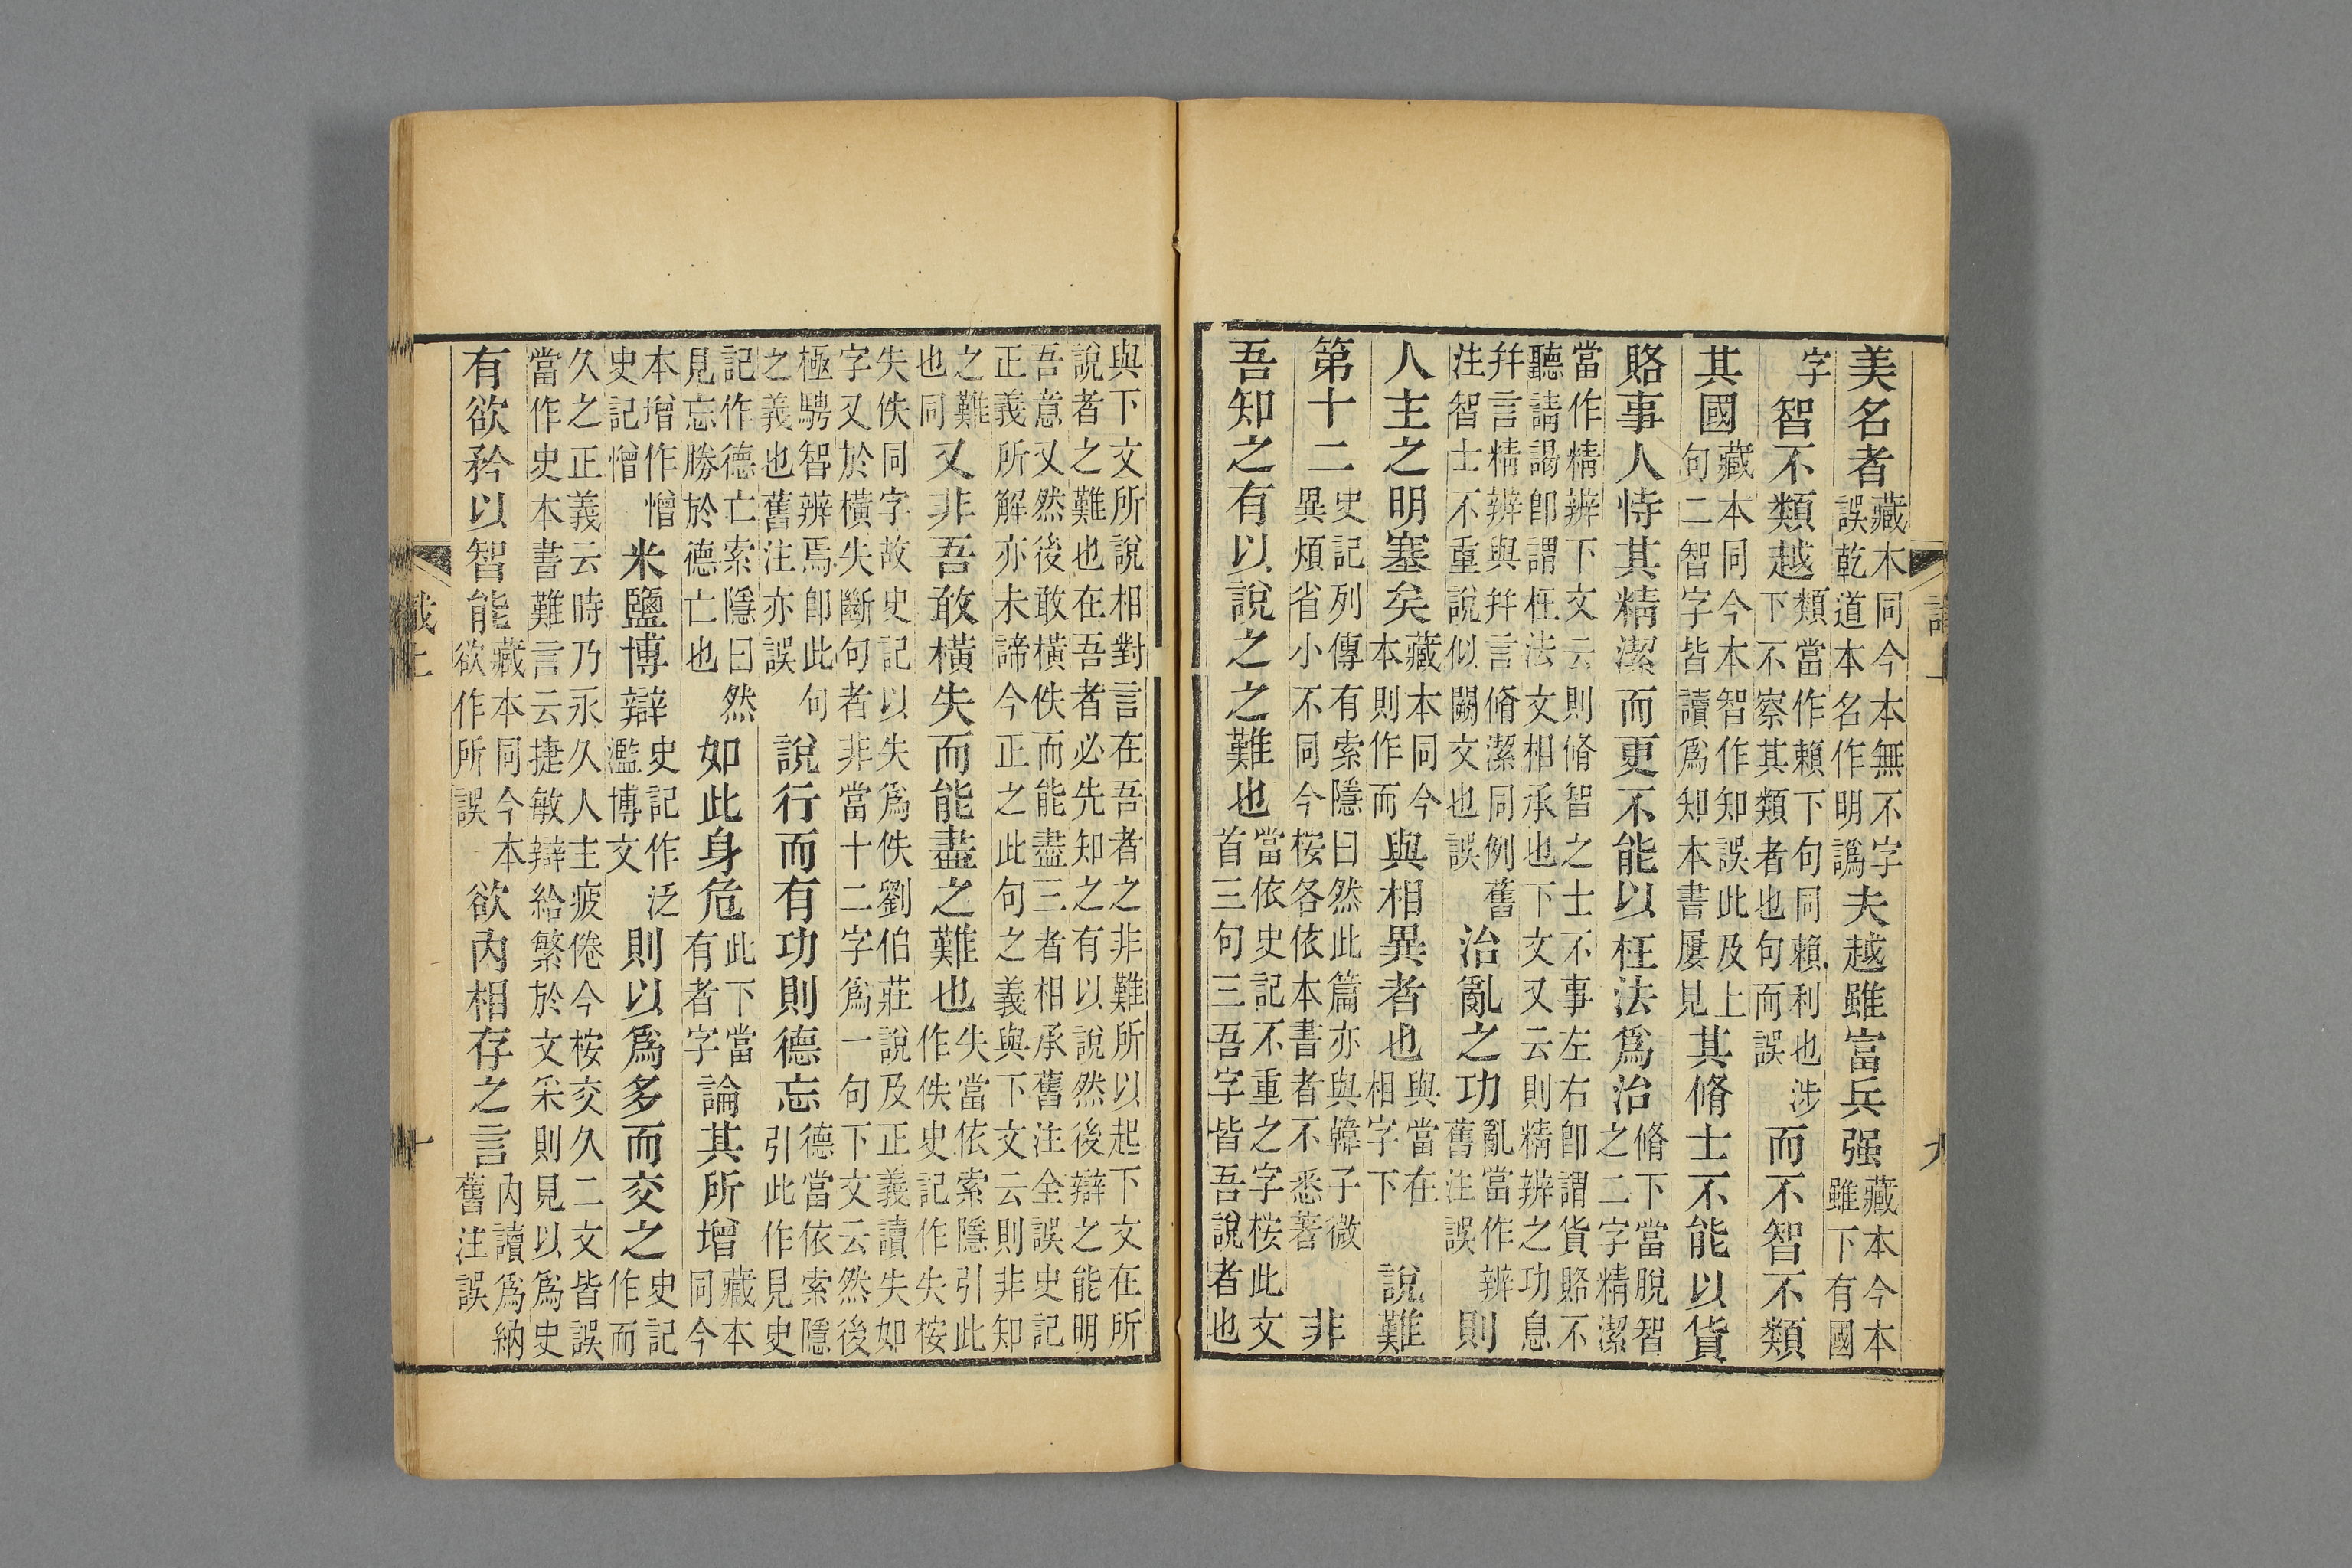 美名者藏本同今本無不字誤乾道本名作明譌夫越雖富兵强藏本今本雖下有國
字智不類越類當作賴下句同賴利也涉下不察其類者也句而誤而不智不類
其國藏本同今本智作知誤此及上句二智字皆讀爲知本書屢見其脩士不能以貨
賂事人恃其精潔而更不能以枉法爲治脩下當脫智之二字精潔
當作精辨下文云則脩智之士不事左右卽謂貨賂不聽請謁卽謂枉法文相承也下文又云則精辨之功息
幷言精辨與幷言脩潔同例舊注智士不重說似闕文也誤治亂之功亂當作辨舊注誤則
人主之明塞矣藏本同今本則作而與相異者也與當在相字下說難
第十二史記列傳有索隱曰然此篇亦與韓子微異煩省小不同今桉各依本書者不悉著非
吾知之有以說之之難也當依史記不重之字桉此文首三句三吾字皆吾說者也
與下文所說相對言在吾者之非難所以起下文在所說者之難也在吾者必先知之有以說然後辯之能明
吾意又然後敢橫佚而能盡三者相承舊注全誤史記正義所解亦未諦今正之此句之義與下文云則非知
之難也同又非吾敢橫失而能盡之難也失當依索隱引此作佚史記作失桉
失佚同字故史記以失爲佚劉伯莊說及正義讀失如字又於橫失斷句者非當十二字爲一句下文云然後
極騁智辨焉卽此句之義也舊注亦誤說行而有功則德忘德當依索隱引此作見史
記作德亡索隱曰然見忘勝於德亡也如此身危此下當有者字論其所增藏本同今
本增作憎史記憎米鹽博辯史記作泛濫博文則以爲多而交之史記作而
久之正義云時乃永久人主疲倦今桉交久二文皆誤當作史本書難言云捷敏辯給繁於文采則見以爲史
有欲矜以智能藏本同今本欲作所誤欲內相存之言內讀爲納舊注誤